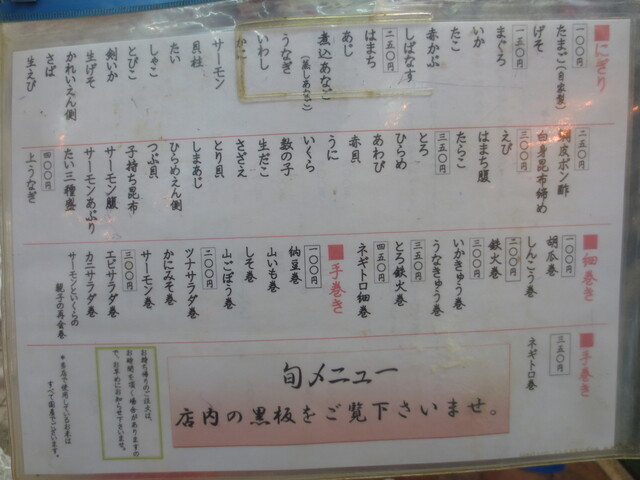 ■にぎり
一〇〇円
たまご(自家製)
げそ
一五〇円
まぐろ
いか
たこ
赤かぶ
しばなす
二五〇円
はまち
あじ
煮込あなご
(蒸しあなご)
うなぎ
いわし
かに
サーモン
貝柱
たい
しゃこ
とびこ
剣いか
生げそ
かれいえん側
さば
生えび
二五〇円
皮ポン酢
白身昆布締め
三〇〇円
えび
はまち腹
たらこ
三五〇円
とろ
ひらめ
あわび
赤貝
うに
いくら
数の子
生だこ
さざえ
とり貝
しまあじ
ひらめえん側
つぶ貝
子持ち昆布
サーモン腹
サーモンあぶり
たい三種盛
四〇〇円
上うなぎ
■細巻き
一〇〇円
胡瓜巻
しんこう巻
二〇〇円
鉄火巻
三〇〇円
いかきゅう巻
うなきゅう巻
三五〇円
とろ鉄火巻
四五〇円
ネギトロ細巻
■手巻き
一〇〇円
納豆巻
山いも巻
しそ巻
山ごぼう巻
二〇〇円
ツナサラダ巻
かにみそ巻
サーモン巻
三〇〇円
エビサラダ巻
カニサラダ巻
サーモンといくらの
親子の再会巻
■手巻き
三五〇円
ネギトロ巻
旬メニュー
店内の黒板をご覧下さいませ。
お持ち帰りのご注文は、
お時間を頂く場合がありますの
で、お早めにお知らせ下さいませ。
*当店で使用しているお米は
すべて国産でございます。